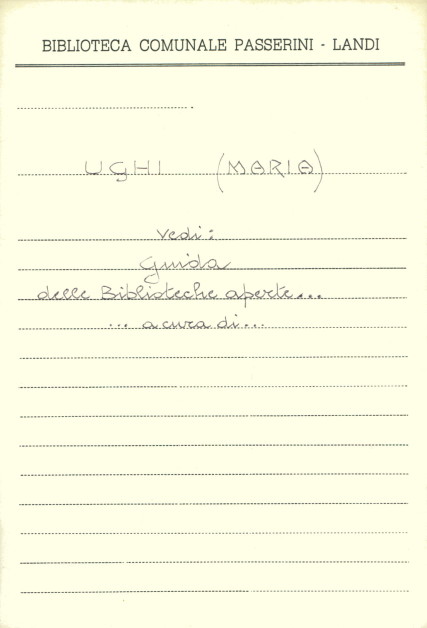 BIBLIOTECA COMUNALE PASSERINI - LANDI
UGHI (MARIA)
vedi:
Guida
delle Biblioteche aperte...
... a cura di...